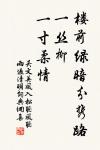 楼前绿暗分携路
一丝柳
一寸柔情
吴文英风入松听风听
雨过清明